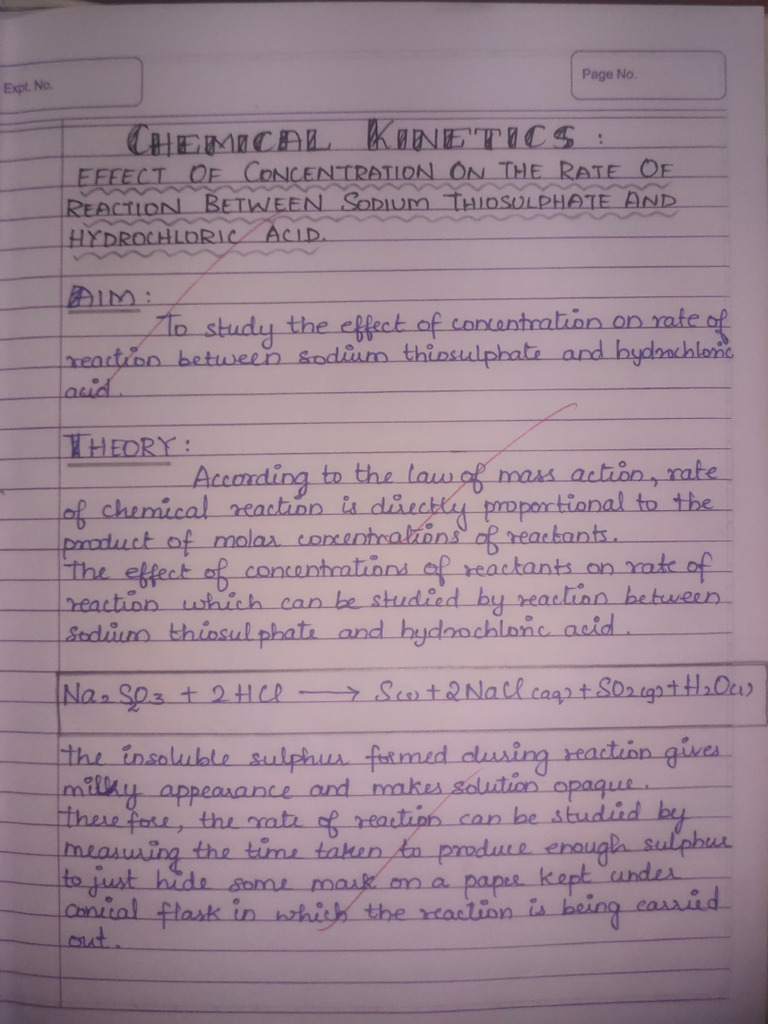 Expt. No.
Page No.
CHEMICAL KINETICS:
EFFECT OF CONCENTRATION ON THE RATE OF
REACTION BETWEEN SODIUM THIOSULPHATE AND
HYDROCHLORIC ACID.
AIM:
To study the effect of concentration on rate of
reaction between sodium thiosulphate and hydrochloric
acid.
THEORY:
According to the law of mass action, rate
of chemical reaction is directly proportional to the
product of molar concentrations of reactants.
The effect of concentrations of reactants on rate of
reaction which can be studied by reaction between
sodium thiosulphate and hydrochloric acid.
Na2S2O3 + 2HCl ⟶ S(s)+2NaCl(aq)+SO2(g)+H2O(l)
The insoluble sulphur formed during reaction gives
milky appearance and makes solution opaque.
Therefore, the rate of reaction can be studied by
measuring the time taken to produce enough sulphur
to just hide some mark on a paper kept under
conical flask in which the reaction is being carried
out.